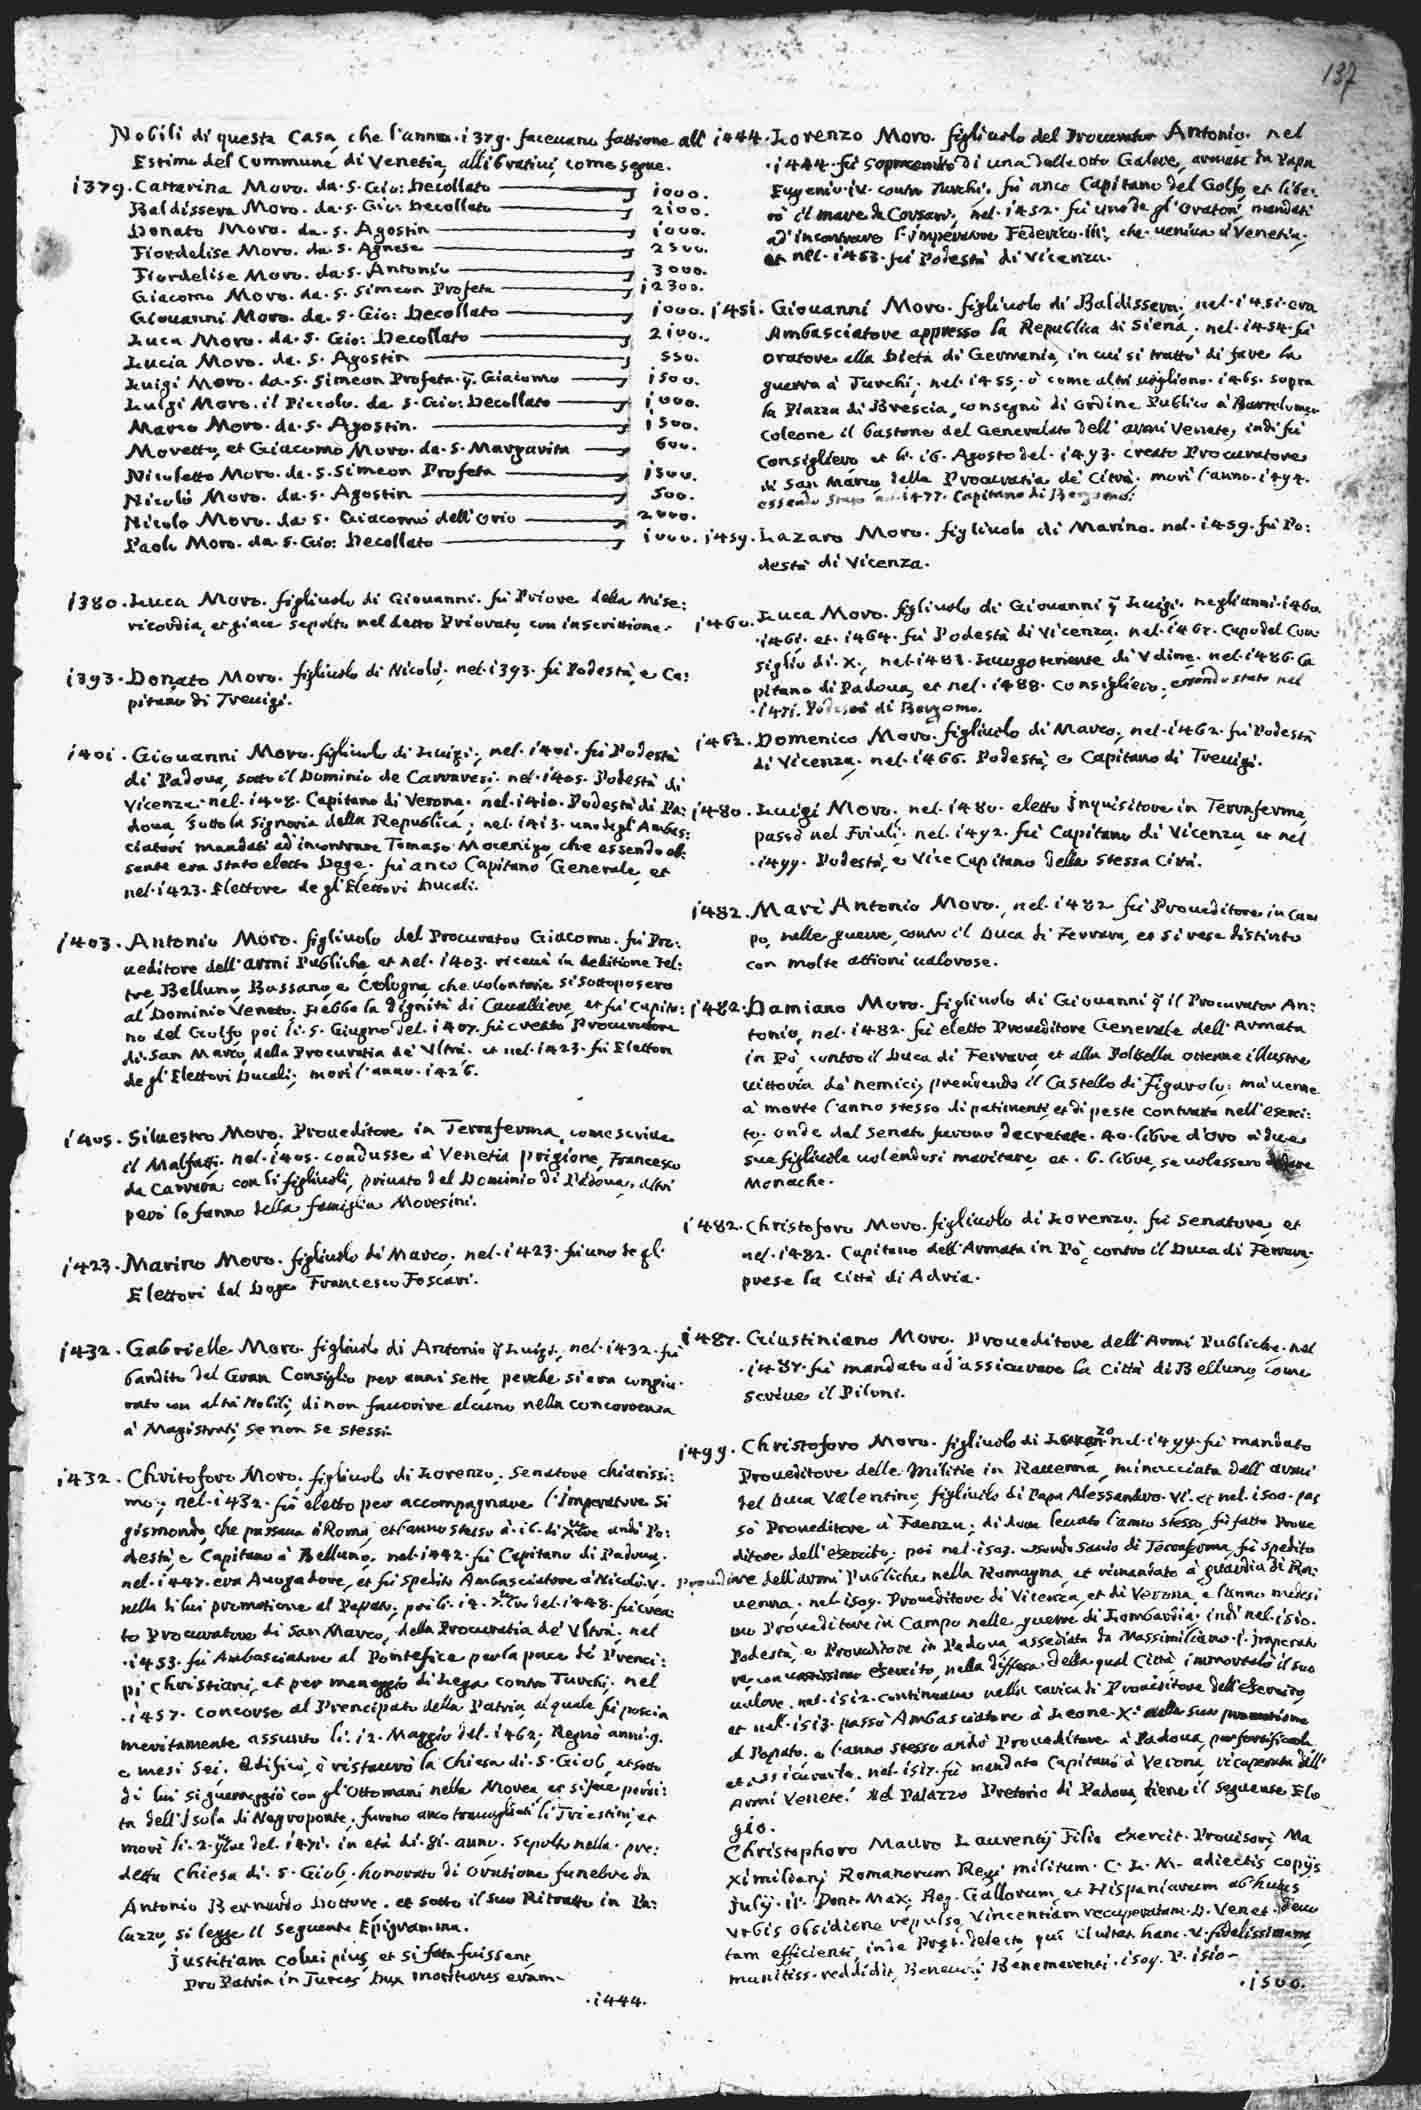 137
Nobili di questa Casa, che l'anno 1379. faceuano fattione all'
Estimo del Commune di Venetia, allibratiui, come segue.
1379. Cattarina Moro. da. S. Gio: Decollato 1000.
Baldissera Moro. da. S. Gio: Decollato 2100.
Donato Moro. da. S. Agostin 1000.
Fiordelise Moro. da. S. Agnese 2500.
Fiordelise Moro. da. S. Antonio 3000.
Giacomo Moro. da. S. Simeon Profeta 12300.
Giouanni Moro. da. S. Gio: Decollato 1000.
Luca Moro. da. S. Gio: Decollato 2100.
Lucia Moro. da. S. Agostin 550.
Luigi Moro. da. S. Simeon Profeta. q. Giacomo 1500.
Luigi Moro. il Piccolo. da S. Gio: Decollato 1000.
Marco Moro. da. S. Agostin. 1500.
Moretto, et Giacomo Moro. da. S. Margarita 600.
Nicoletto Moro. da. S. Simeon Profeta 1500.
Nicolò Moro. da. S. Agostin 500.
Nicolo Moro. da S. Giacomo dell'Orio 2000.
Paolo Moro. da. S. Gio: Decollato 1000.
1380. Luca Moro. figliuolo di Giouanni. fù Priore della Mise:
ricordia, et giace sepolto nel detto Priorato, con inscrittione.
1393. Donato Moro. figliuolo di Nicolò; nel. 1393. fù Podestà, e Ca:
pitano di Treuigi.
1401. Giouanni Moro. figliuolo di Luigi; nel. 1401. fù Podestà
di Padoua, sotto il Dominio de Carraresi; nel. 1405. Podestà di
Vicenza; nel. 1408. Capitano di Verona; nel. 1410. Podestà di Pa:
doua, sotto la Signoria della Republica; nel. 1413. uno degl'Ambas:
ciatori mandati ad incontrare Tomaso Mocenigo, che essendo ab:
sente era stato eletto Doge. fù anco Capitano Generale, et
nel. 1423. Elettore de gl'Elettori Ducali.
1403. Antonio Moro. figliuolo del Procurator Giacomo. fù Pro:
ueditore dell'armi Publiche, et nel. 1403. riceuè in deditione Fel:
tre, Belluno, Bassano, e Cologna, che uolontarie si sottoposero
al Dominio Veneto. Hebbe la dignità di Caualliere, et fù Capita:
no del Golfo, poi li. 5. Giugno del. 1407. fù creato Procuratore
di. San Marco, della Procuratia de Vltra. et nel. 1423. fù Elettore
de gl'Elettori Ducali; morì l'anno. 1426.
1405. Siluestro Moro. Proueditore in Terraferma, come scriue
il Malfatti. nel. 1405. condusse à Venetia prigione, Francesco
da Carrara con li figliuoli, priuato del Dominio di Padoua. altri
però lo fanno della famiglia Moresini.
1423. Marino Moro. figliuolo di Marco; nel. 1423. fù uno de gl'
Elettori del Doge Francesco Foscari.
1432. Gabrielle Moro. figliuolo di Antonio q. Luigi; nel. 1432. fù
bandito dal Gran Consiglio per anni sette, perche si era congiu:
rato con altri Nobili, di non fauorire alcuno nella concorrenza
a' Magistrati, se non se stessi.
1432. Christoforo Moro. figliuolo di Lorenzo; Senatore chiarissi:
mo; nel. 1432. fù eletto per accompagnare l'Imperatore Si
gismondo, che passaua à Roma, et l'anno stesso à. 16. di Xbre andò Po:
destà, e Capitano à Belluno; nel. 1442. fù Capitano di Padoua.
nel. 1447. era Auogadore, et fù spedito Ambasciatore à Nicolò. V.
nella di lui promotione al Papato; poi li. 14. 7bre del. 1448. fù crea:
to Procuratore di San Marco, della Procuratia de' Vltra; nel
.1453. fù Ambasciatore al Pontefice per la pace de Prenci:
pi Christiani, et per maneggio di Lega contro Turchi; nel
.1457. concorse al Prencipato della Patria, al quale fù poscia
meritamente assunto li. 12. Maggio del. 1462; Regnò anni. 9.
e mesi sei. Edificò, ò ristaurò la Chiesa di. S. Giob, et sotto
di lui si guerreggiò con gl'Ottomani nella Morea, et si fece perdi:
ta dell'Isola di Negroponte. furono anco trauagliati li Triestini, et
morì li. 2. 9bre del. 1471. in età di. 81. anno. sepolto nella. pre:
detta Chiesa di. S. Giob. honorato di Oratione funebre da
Antonio Bernardo Dottore. et sotto il suo Ritratto in Pa:
lazzo, si legge il seguente Epigramma.
Justitiam colui pius, et si fata fuissent,
Pro Patria in Turcas Dux moriturus eram.
.1444.
1444. Lorenzo Moro. figliuolo del Procurator Antonio. nel
.1444. fù Sopracomito di una delle otto Galere, armate da Papa
Eugenio. IV. contro Turchi; fù anco Capitano del Golfo, et libe:
rò il mare da Corsari; nel. 1452. fù uno de gl'Oratori, mandati
ad incontrare l'Imperatore Federico. III; che ueniua à Venetia;
et nel. 1453. fù Podestà di Vicenza.
1451. Giouanni Moro. figliuolo di Baldissera; nel. 1451. era
Ambasciatore appresso la Republica di Siena; nel. 1454. fù
Oratore alla Dieta di Germania, in cui si trattò di fare la
guerra à Turchi; nel. 1455. ò come altri uogliono. 1465. sopra
la Piazza di Brescia, consegnò di ordine Publico à Bartolomeo
Coleone il bastone del Generalato dell'armi Venete, indi fù
Consigliero et li. 16. Agosto del. 1473. creato Procuratore
di San Marco, della Procuratia de' Citra. morì l'anno. 1494.
essendo stato nel. 1477. Capitano di Bergomo.
1459. Lazaro Moro. figliuolo di Marino. nel. 1459. fù Po:
destà di Vicenza.
1460. Luca Moro. figliuolo di Giouanni q. Luigi. negli anni. 1460.
.1461. et. 1464. fù Podestà di Vicenza; nel. 1467. Capo del Con
siglio di. X.; nel. 1481. Luogotenente di Vdine. nel. 1486. Ca
pitano di Padoua, et nel. 1488. Consigliero; essendo stato nel
.1471. Podestà di Bergomo.
1462. Domenico Moro. figliuolo di Marco; nel. 1462. fù Podestà
di Vicenza; nel. 1466. Podestà, e Capitano di Treuigi.
1480. Luigi Moro; nel. 1480. eletto Inquisitore in Terraferma,
passò nel Friuli; nel. 1492. fù Capitano di Vicenza, et nel
.1499. Podestà, e Vice Capitano della stessa Città.
1482. Marc'Antonio Moro; nel. 1482 fù Proueditore in Cam
po, nelle guerre, contro il Duca di Ferrara, et si rese distinto
con molte attioni ualorose.
1482. Damiano Moro. figliuolo di Giouanni q. il Procurator An:
tonio, nel. 1482. fù eletto Proueditore Generale dell'Armata
in Pò, contro il Duca di Ferrara, et alla Polsella ottenne illustre
uittoria de' nemici, prendendo il Castello di Figarolo; mà uenne
à morte l'anno stesso di patimenti, et di peste contratta nell'eserci:
to. onde dal Senato furono decretate. 40. libre d'oro à due
sue figliuole uolendosi maritare, et. 6. libre, se uolessero andare
Monache.
1482. Christoforo Moro. figliuolo di Lorenzo. fù Senatore, et
nel. 1482. Capitano dell'Armata in Pò, contro il Duca di Ferrara,
prese la Città di Adria.
1487. Giustiniano Moro. Proueditore dell'Armi Publiche. nel
.1487. fù mandato ad'assicurare la Città di Belluno, come
scriue il Piloni.
1499. Christoforo Moro. figliuolo di Lorenzo nel. 1499. fù mandato
Proueditore delle Militie in Rauenna, minacciata dall'armi
del Duca Valentino, figliuolo di Papa Alessandro. VI. et nel. 1500. pas
sò Proueditore à Faenza; di doue leuato l'anno stesso, fù fatto Proue
ditore dell'esercito; poi nel. 1503. essendo Sauio di Terraferma, fù spedito
Proueditore dell'armi Publiche nella Romagna, et rimandato à guardia di Ra:
uenna. nel. 1509. Proueditore di Vicenza, et di Verona, e l'anno medesi
mo Proueditore in Campo nelle guerre di Lombardia. indi nel. 1510.
Podestà, e Proueditore in Padoua, assediata da Massimiliano. I. Imperato
re con uastissimo esercito, nella diffesa della qual Città immortalò il suo
ualore. nel. 1512. continuaua nella carica di Proueditore dell'Esercito,
et nell. 1513. passò Ambasciatore à Leone. X. alla sua promotione
al Papato. e l'anno stesso andò Proueditore à Padoua, per fortificarla
et assicurarla. nel. 1517. fù mandato Capitano à Verona, ricuperata dall'
Armi Venete. Nel Palazzo Pretorio di Padoua, tiene il seguente Elo
gio.
Christophoro Mauro Laurentij Filio Exercit. Prouisori, Ma
ximiliani Romanorum Regi militum. C. L. M. adiectis copijs
Julij. II. Pont. Max; Reg. Gallorum, et Hispaniarum ab huius
Vrbis obsidione repulso, Vincentiam recuperatam. D. Venet.
tam efficienti, inde Pręt. delecto, qui Ciuitat. hanc. V. fidelissimam,
munitiss. reddidit, Benemerenti. 1509. P. 1510.
.1500.